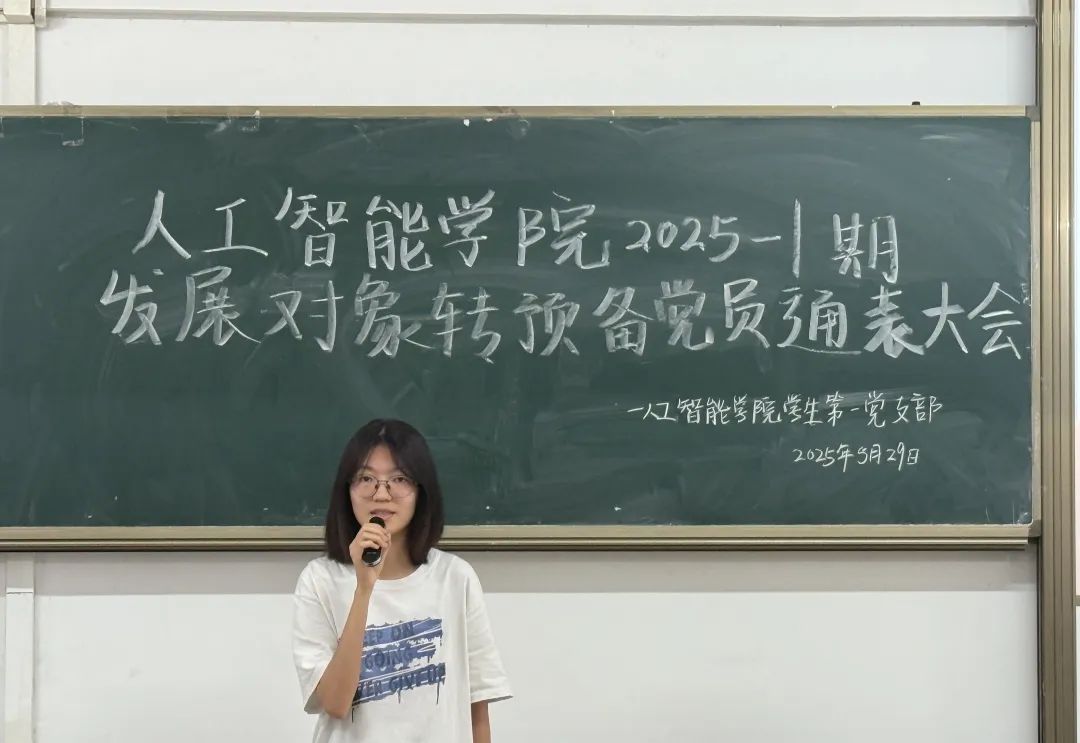 人工智能学院2025-1期
发展对象转预备党员通表大会
一人工智能学院学生第一党支部
2025年5月29日
KEEP ON
GOING
NEVER GIVE UP